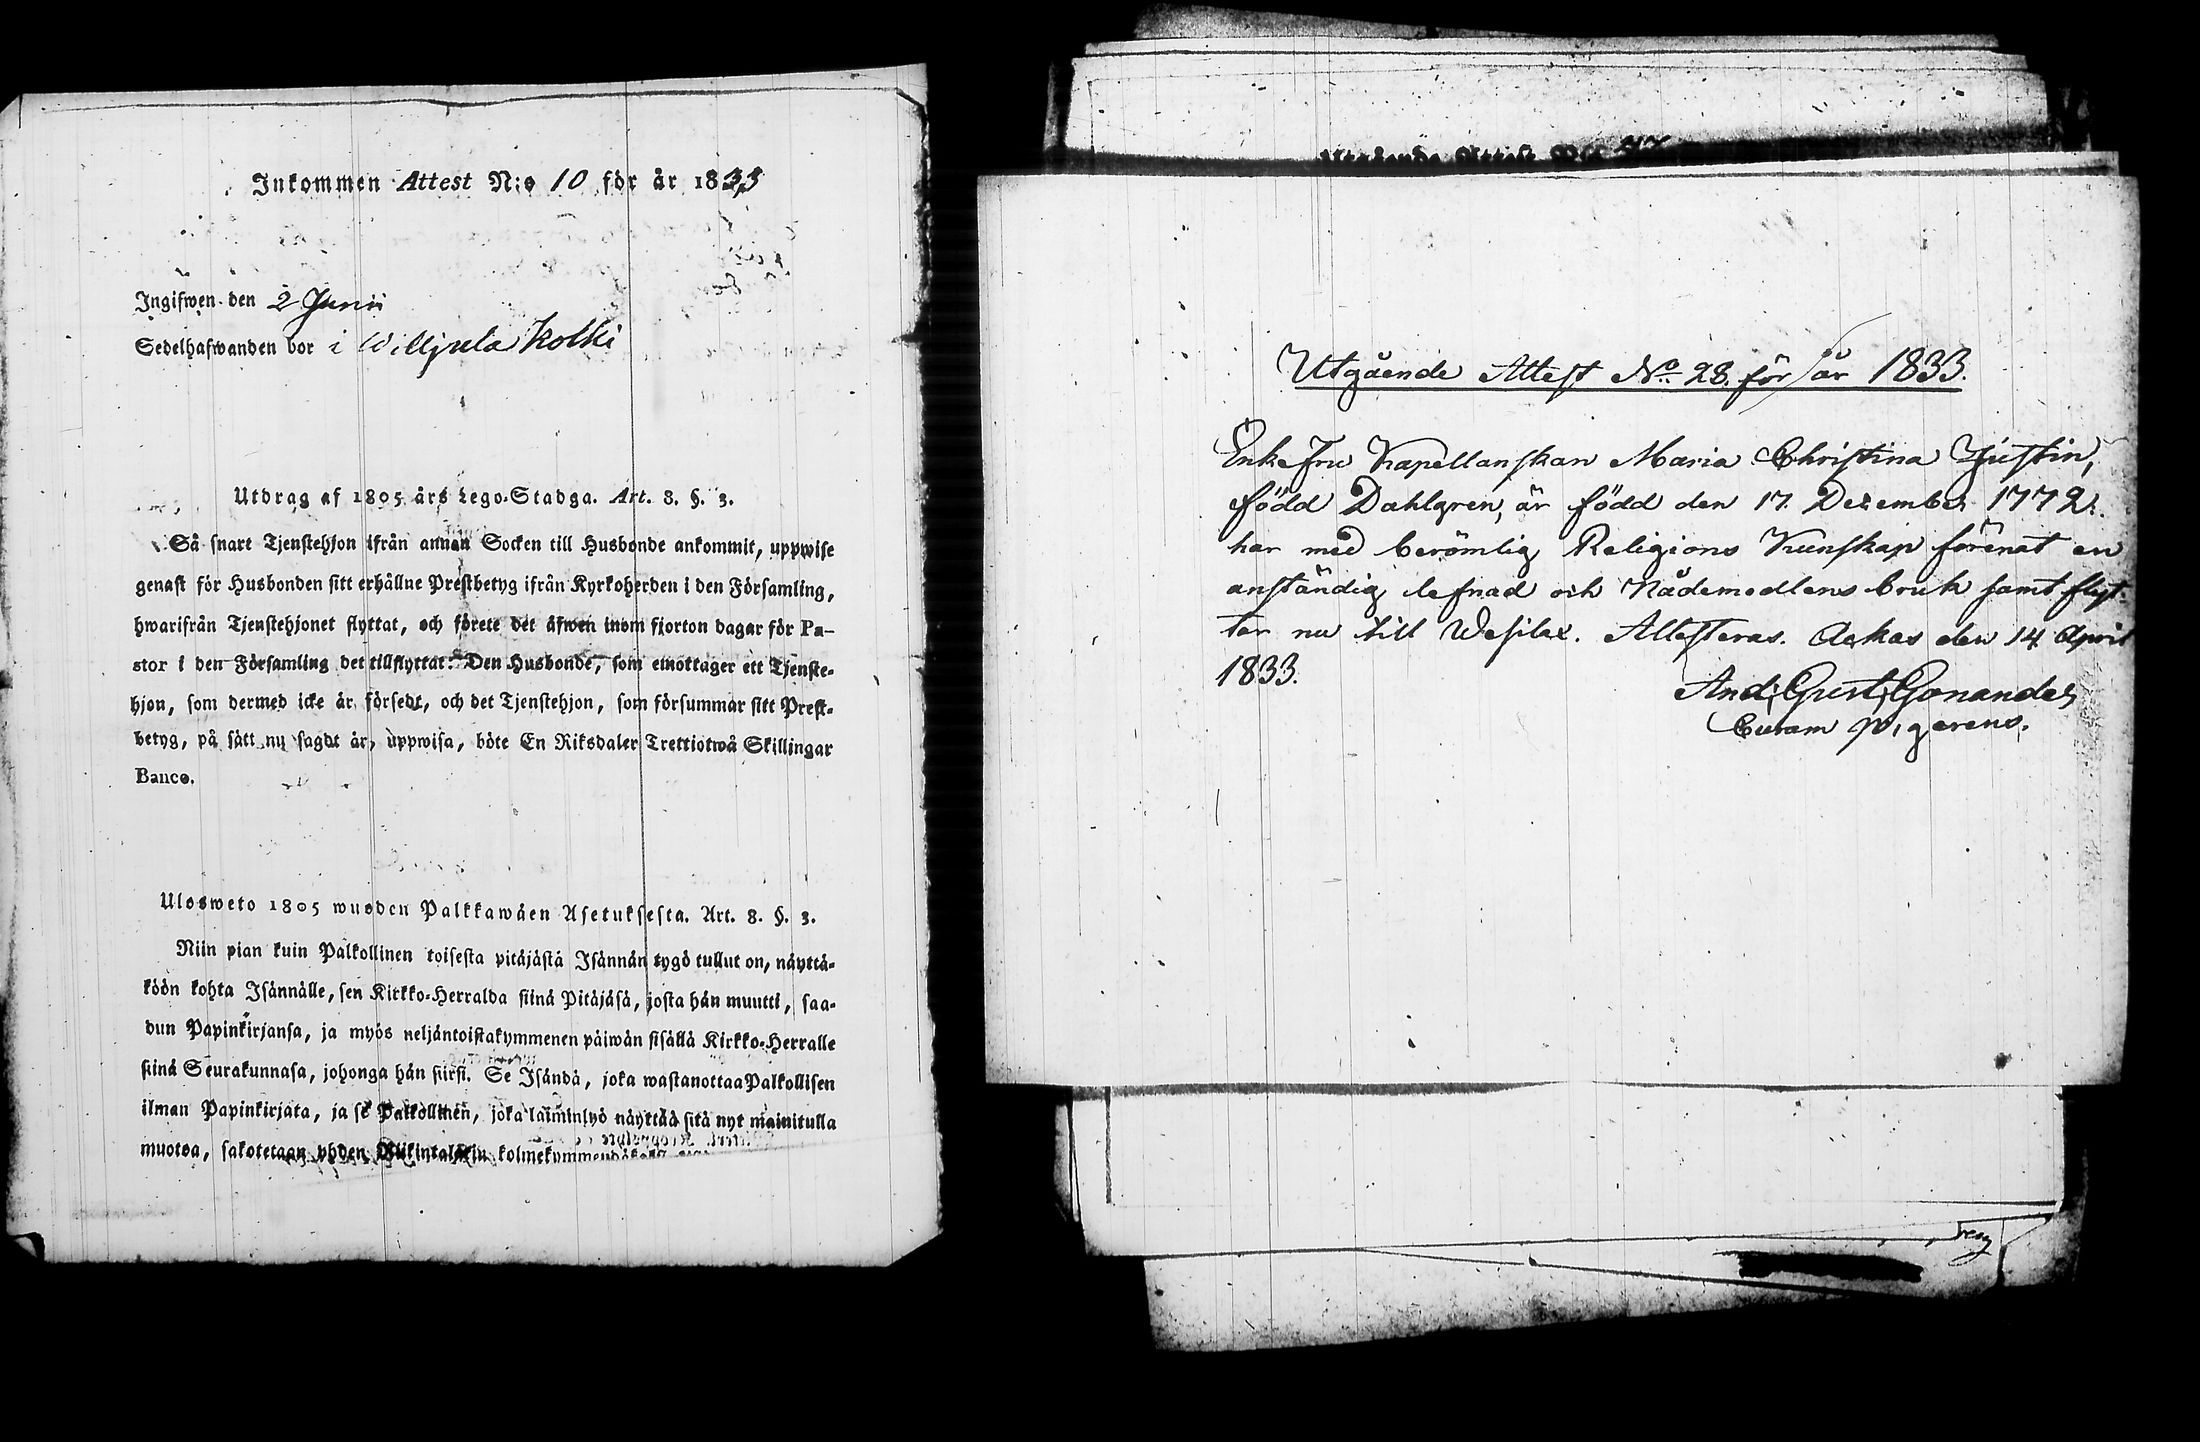 Inkommen Attest N:o 10 för år 1833
Ingifwen den 2 Junii
Sedelhafwanden bor i Willjula Kolki
Utdrag af 1805 års Lego-Stadga. Art. 8. §. 3.
Så snart Tjenstehjon ifrån annan Socken till Husbonde ankommit, uppwise
genast för Husbonden sitt erhållne Prestbetyg ifrån Kyrkoherden i den Församling,
hwarifrån Tjenstehjonet flyttat, och förete det äfwen inom fjorton dagar för Pa-
stor i den Församling det tillflyttat. Den Husbonde, som emottager ett Tjenste-
hjon, som dermed icke är försedt, och det Tjenstehjon, som försummar sitt Prest-
betyg, på sätt nu sagdt är, uppwisa, böte En Riksdaler Trettiotwå Skillingar
Banco.
Ulosweto 1805 wuoden Palkkawäen Asetuksesta. Art. 8. §. 3.
Niin pian kuin Palkollinen toisesta pitäjästä Isännän tygö tullut on, näyttä-
köön kohta Isännälle, sen Kirkko-Herralda siinä Pitäjäsä, josta hän muutti, saa-
dun Papinkirjansa, ja myös neljäntoistakymmenen päiwän sisällä Kirkko-Herralle
siinä Seurakunnasa, johonga hän siirsi. Se Isändä, joka wastanottaa Palkollisen
ilman Papinkirjata, ja se Palkollinen, joka laiminlyö näyttää sitä nyt mainitulla
muotoa, sakotetaan yhden Riikintalarin
Utgående Attest No
Utgående Attest No 28. för år 1833.
Enke Fru Kapellanskan Maria Christina Justin,
född Dahlgren, är född den 17. December 1772.
har med berömlig Religions Kunskap förenat en
anständig lefnad och Nådemedlens bruk samt flyt-
tar nu till Wesilax. Attesteras. Ackas den 14 April
1833.
And: Gust: Gonander
Curam p. gerens.